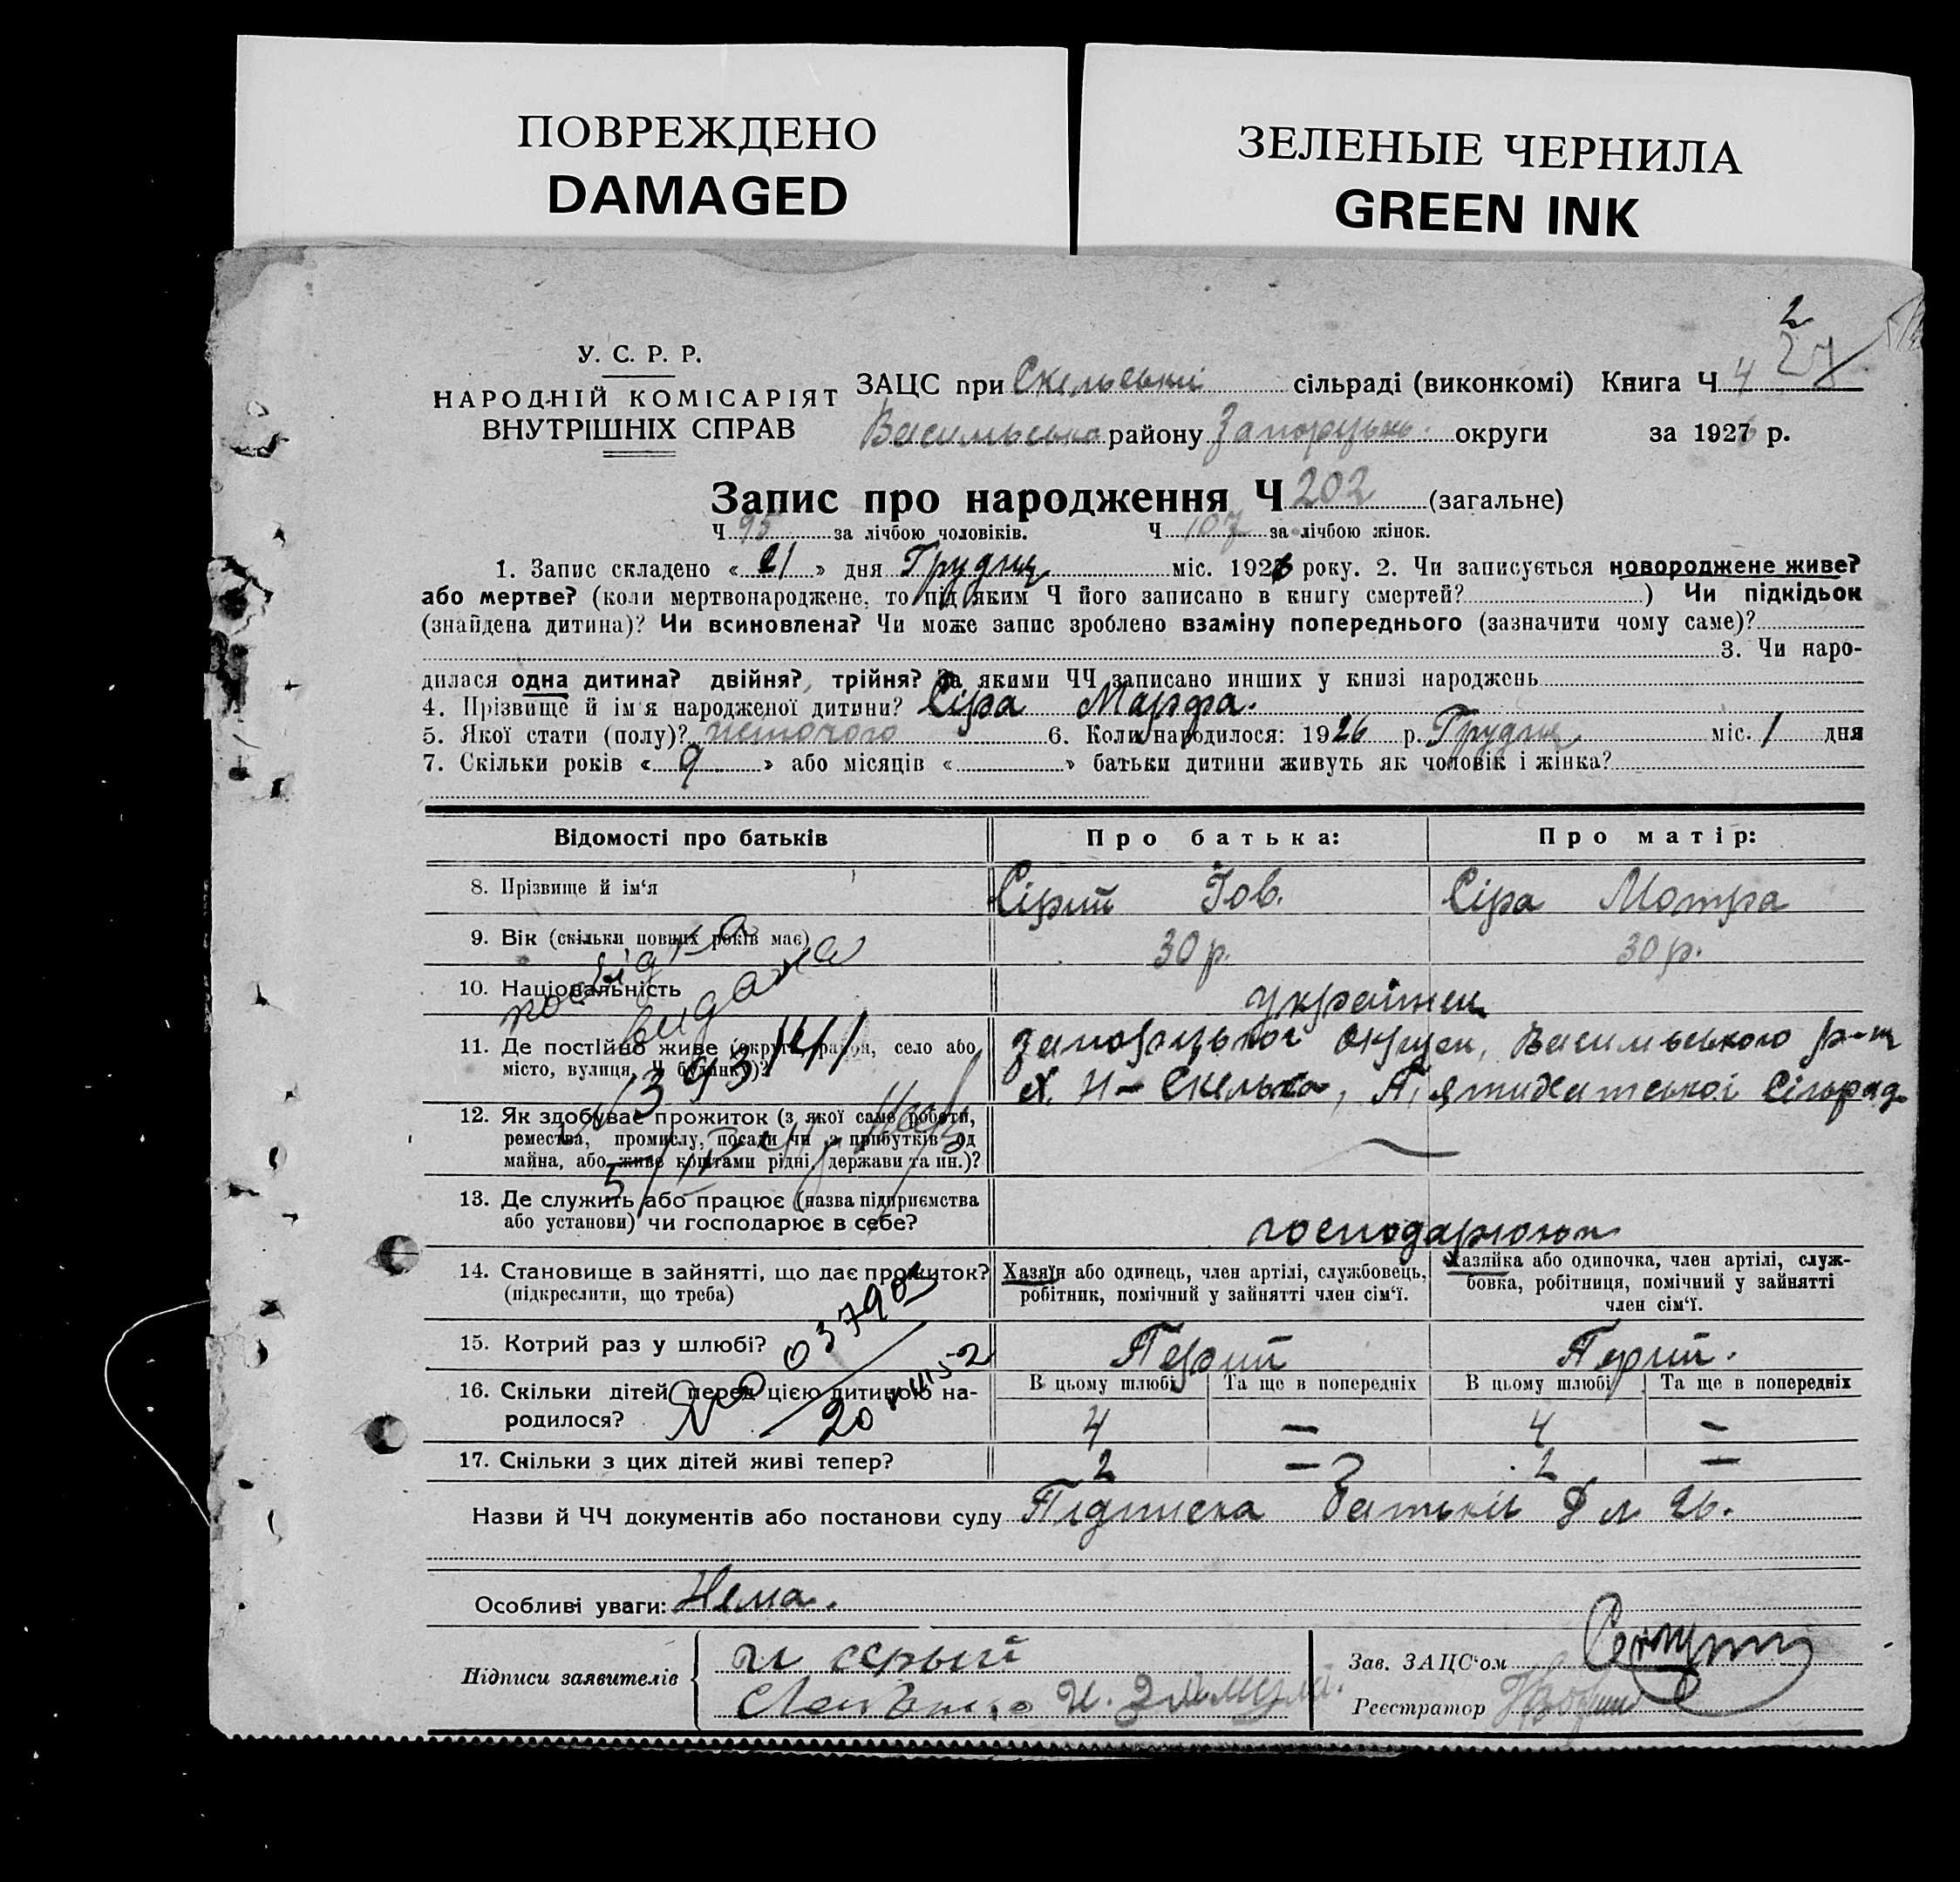 ПОВРЕЖДЕНО
DAMAGED
ЗЕЛЕНЫЕ ЧЕРНИЛА
GREEN INK
2
27
У. С. Р. Р.
НАРОДНІЙ КОМІСАРІЯТ
ВНУТРІШНІХ СПРАВ
ЗАЦС при Скельській сільраді (виконкомі) Книга Ч 4
Васильсько району Запорузьк. округи за 1926 р.
Запис про народження Ч 202 (загальне)
Ч 95 за лічбою чоловіків. Ч 107 за лічбою жінок.
1. Запис складено « 21 » дня Грудня міс. 1926 року. 2. Чи записується новороджене живе?
або мертве? (коли мертвонароджене, то під яким Ч його записано в книгу смертей? ) Чи підкідьок
(знайдена дитина)? Чи всиновлена? Чи може запис зроблено взаміну попереднього (зазначити чому саме)?
3. Чи наро-
дилася одна дитина? двійня?, трійня? За якими ЧЧ записано инших у книзі народжень
4. Прізвище й ім'я народженої дитини? Сіра Марфа.
5. Якої стати (полу)? жіночого 6. Коли народилося: 1926 р. Грудня міс. 1 дня
7. Скільки років « 9 » або місяців « » батьки дитини живуть як чоловік і жінка?
Відомості про батьків Про батька: Про матір:
8. Прізвище й ім'я Сірий Іов. Сіра Мотря
9. Вік (скільки повних років має) 30 р. 30 р.
10. Національність українці
11. Де постійно живе (округа, район, село або Запорізької округи, Васильського р-н
місто, вулиця, Ч будинку)? Х. Н-Скелька, Пятихатської Сільрад.
12. Як здобуває прожиток (з якої саме роботи,
ремества, промислу, посади чи з прибутків од
майна, або живе коштами рідні, держави та ин.)?
13. Де служить або працює (назва підприємства
або установи) чи господарює в себе? господарюють
14. Становище в зайнятті, що дає прожиток? Хазяїн або одинець, член артілі, службовець, Хазяйка або одиночка, член артілі, служ-
(підкреслити, що треба) робітник, помічний у зайнятті член сім'ї. бовка, робітниця, помічний у зайнятті
член сім'ї.
15. Котрий раз у шлюбі? Перший Перший.
16. Скільки дітей перед цією дитиною на- В цьому шлюбі Та ще в попередніх В цьому шлюбі Та ще в попередніх
родилося? 4 — 4 —
17. Скільки з цих дітей живі тепер? 2 — 2 —
посвідка
видана
393/41
Назви й ЧЧ документів або постанови суду Підписка батьків Д л 26.
Особливі уваги: Нема.
Підписи заявителів и серый
Зав. ЗАЦС'ом
Реєстратор